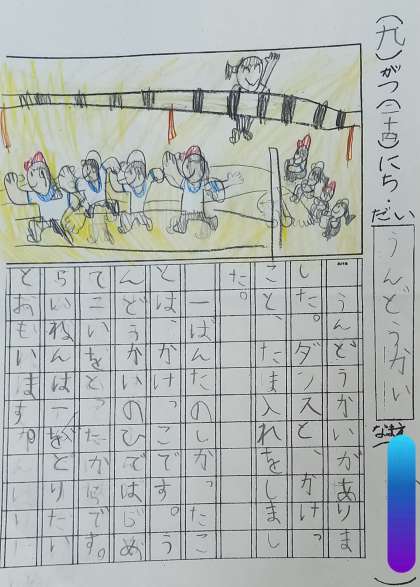 (九)がつ(十五)にち・だい
うんどうかい
なまえ
うんどうかいがありま
した。ダンスと、かけっ
こと、たま入れをしまし
た。
一ばんたのしかったこ
とは、かけっこです。う
んどうかいのひではじめ
て二いをとったからです。
らいねんは一 とりたい
とおもいます